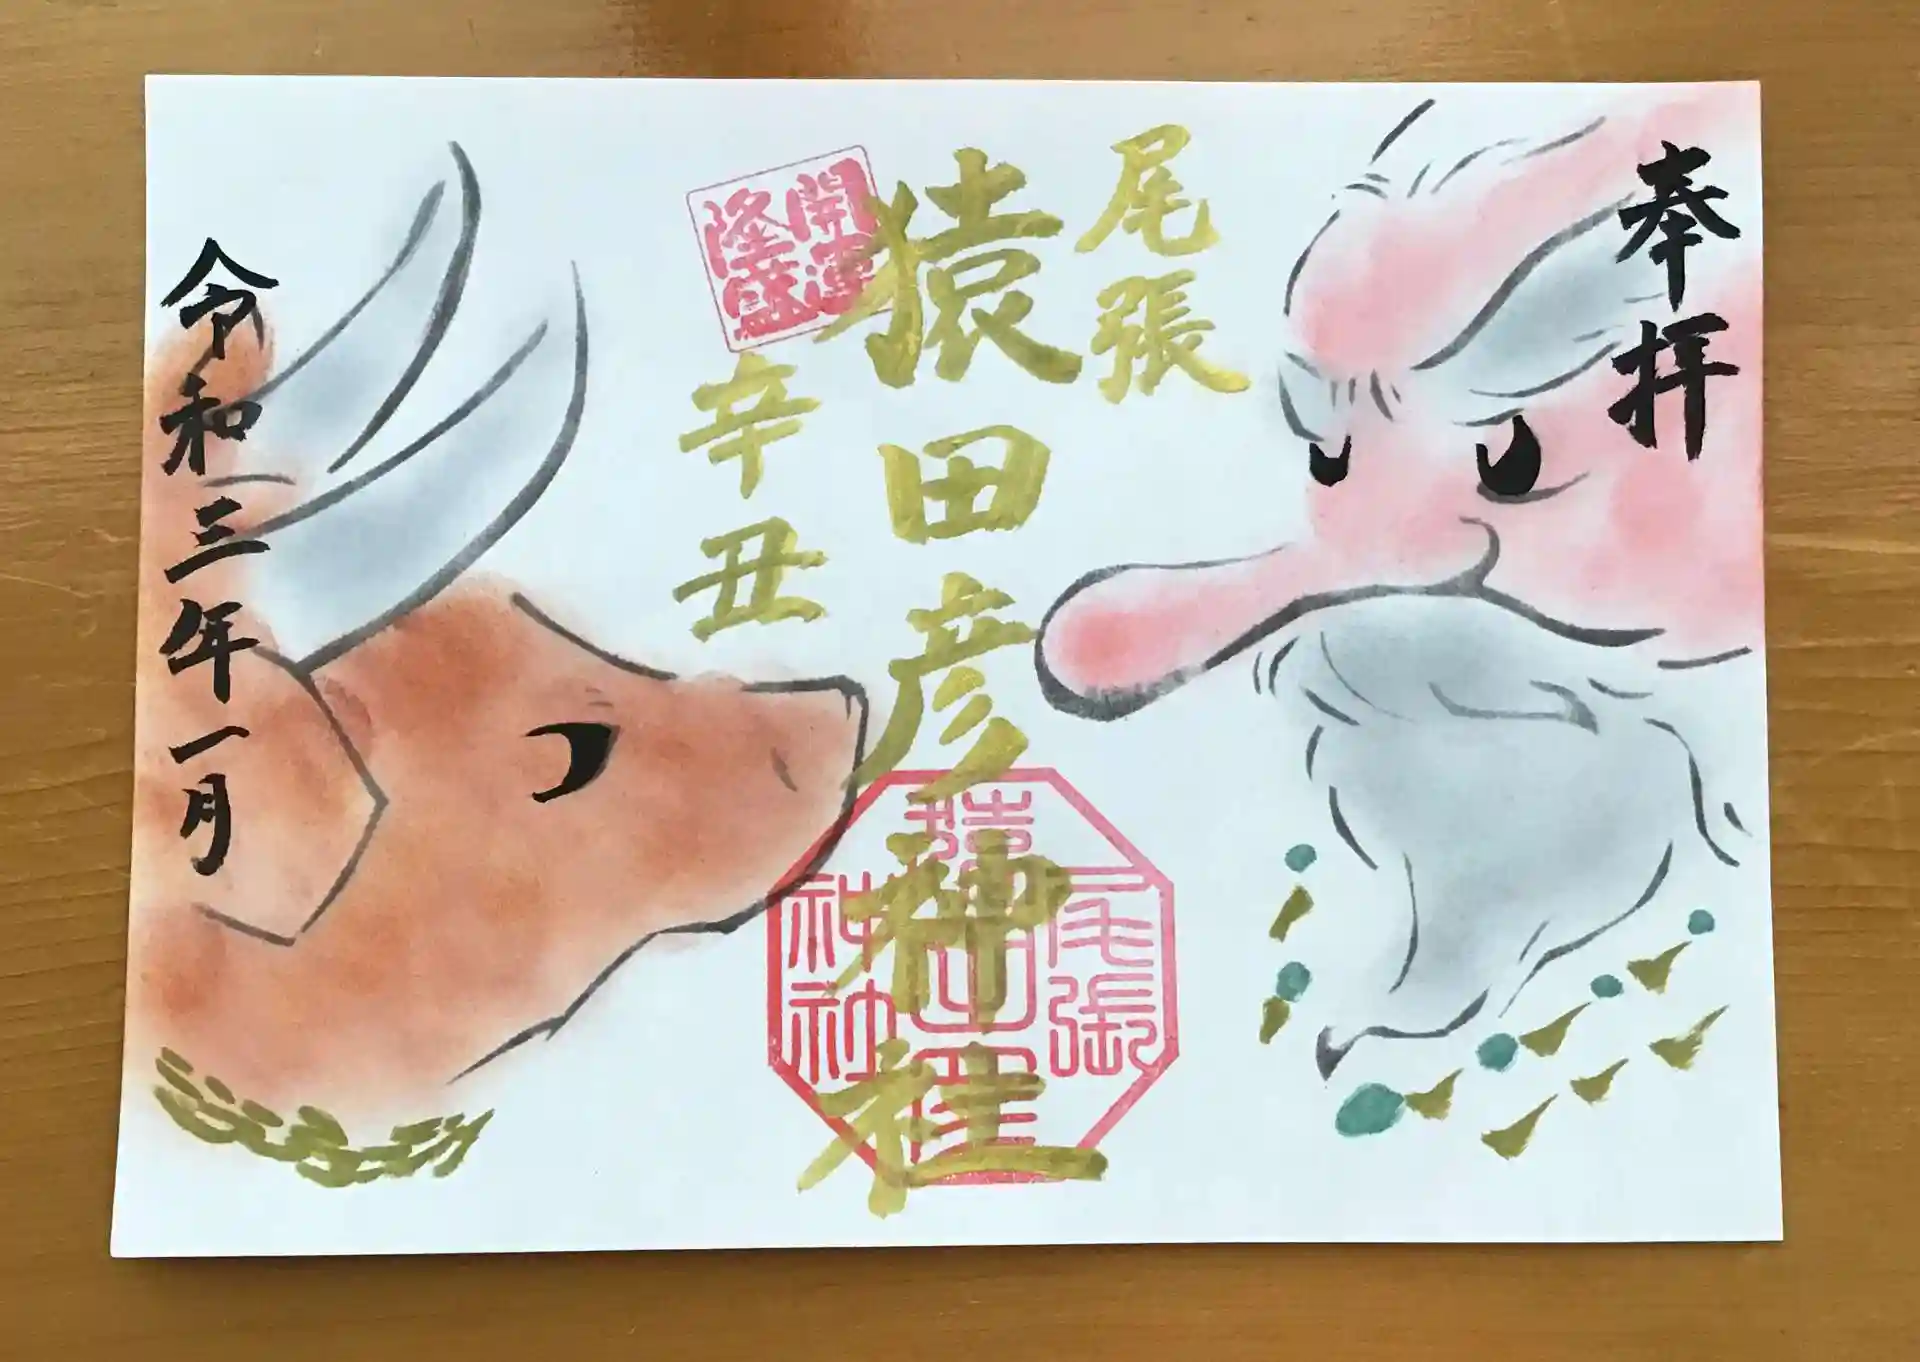 奉拝
尾張
猿田彦神社
開運
隆盛
辛丑
尾張
猿田彦
神社
令和三年一月